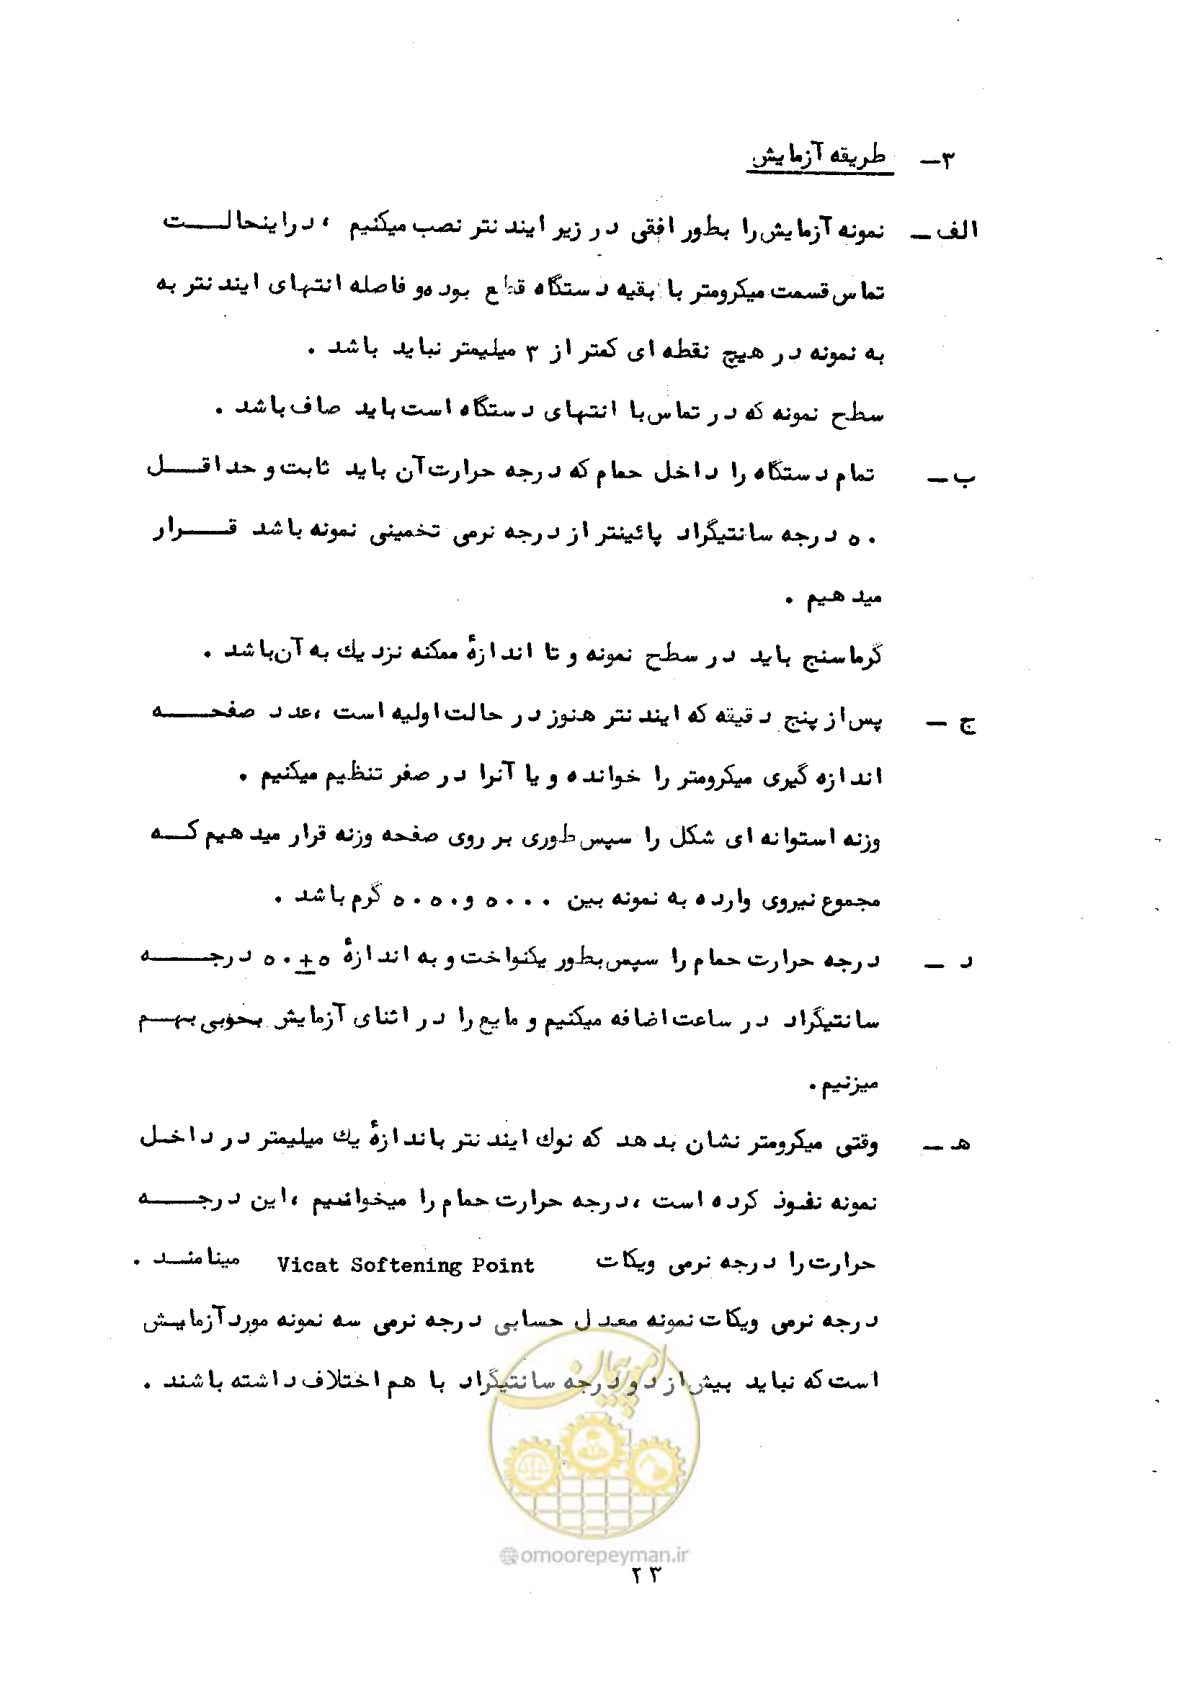 ۳ــ طریقه آزمایش
الف ــ نمونه آزمایش را بطور افقی در زیر ایندنتر نصب میکنیم ، دراینحالــــت
تماس قسمت میکرومتر با بقیه دستگاه قطع بوده و فاصله انتهای ایندنتر به
به نمونه در هیچ نقطه ای کمتر از ۳ میلیمتر نباید باشد .
سطح نمونه که در تماس با انتهای دستگاه است باید صاف باشد .
ب ــ تمام دستگاه را داخل حمام که درجه حرارت آن باید ثابت و حداقــــل
۵۰ درجه سانتیگراد پائینتر از درجه نرمی تخمینی نمونه باشد قــــرار
میدهیم .
گرماسنج باید در سطح نمونه و تا اندازهٔ ممکنه نزدیك به آن باشد .
ج ــ پس از پنج دقیقه که ایندنتر هنوز در حالت اولیه است ،عدد صفحــــه
اندازه گیری میکرومتر را خوانده و یا آنرا در صفر تنظیم میکنیم .
وزنه استوانه ای شکل را سپس طوری بر روی صفحه وزنه قرار میدهیم کــه
مجموع نیروی وارده به نمونه بین ۵۰۰۰ و ۵۰۵۰ گرم باشد .
د ــ درجه حرارت حمام را سپس بطور یکنواخت و به اندازهٔ ۵±۵۰ درجــــه
سانتیگراد در ساعت اضافه میکنیم و مایع را در اثنای آزمایش بخوبی بهــم
میزنیم.
هـ ــ وقتی میکرومتر نشان بدهد که نوك ایندنتر باندازهٔ یك میلیمتر در داخــل
نمونه نفوذ کرده است ،درجه حرارت حمام را میخوانیم ،این درجــــه
حرارت را درجه نرمی ویکات Vicat Softening Point مینامنــد .
درجه نرمی ویکات نمونه معدل حسابی درجه نرمی سه نمونه مورد آزمایــش
است که نباید بیش از دو درجه سانتیگراد با هم اختلاف داشته باشند .
امور پیمان
@omoorepeyman.ir
۲۳